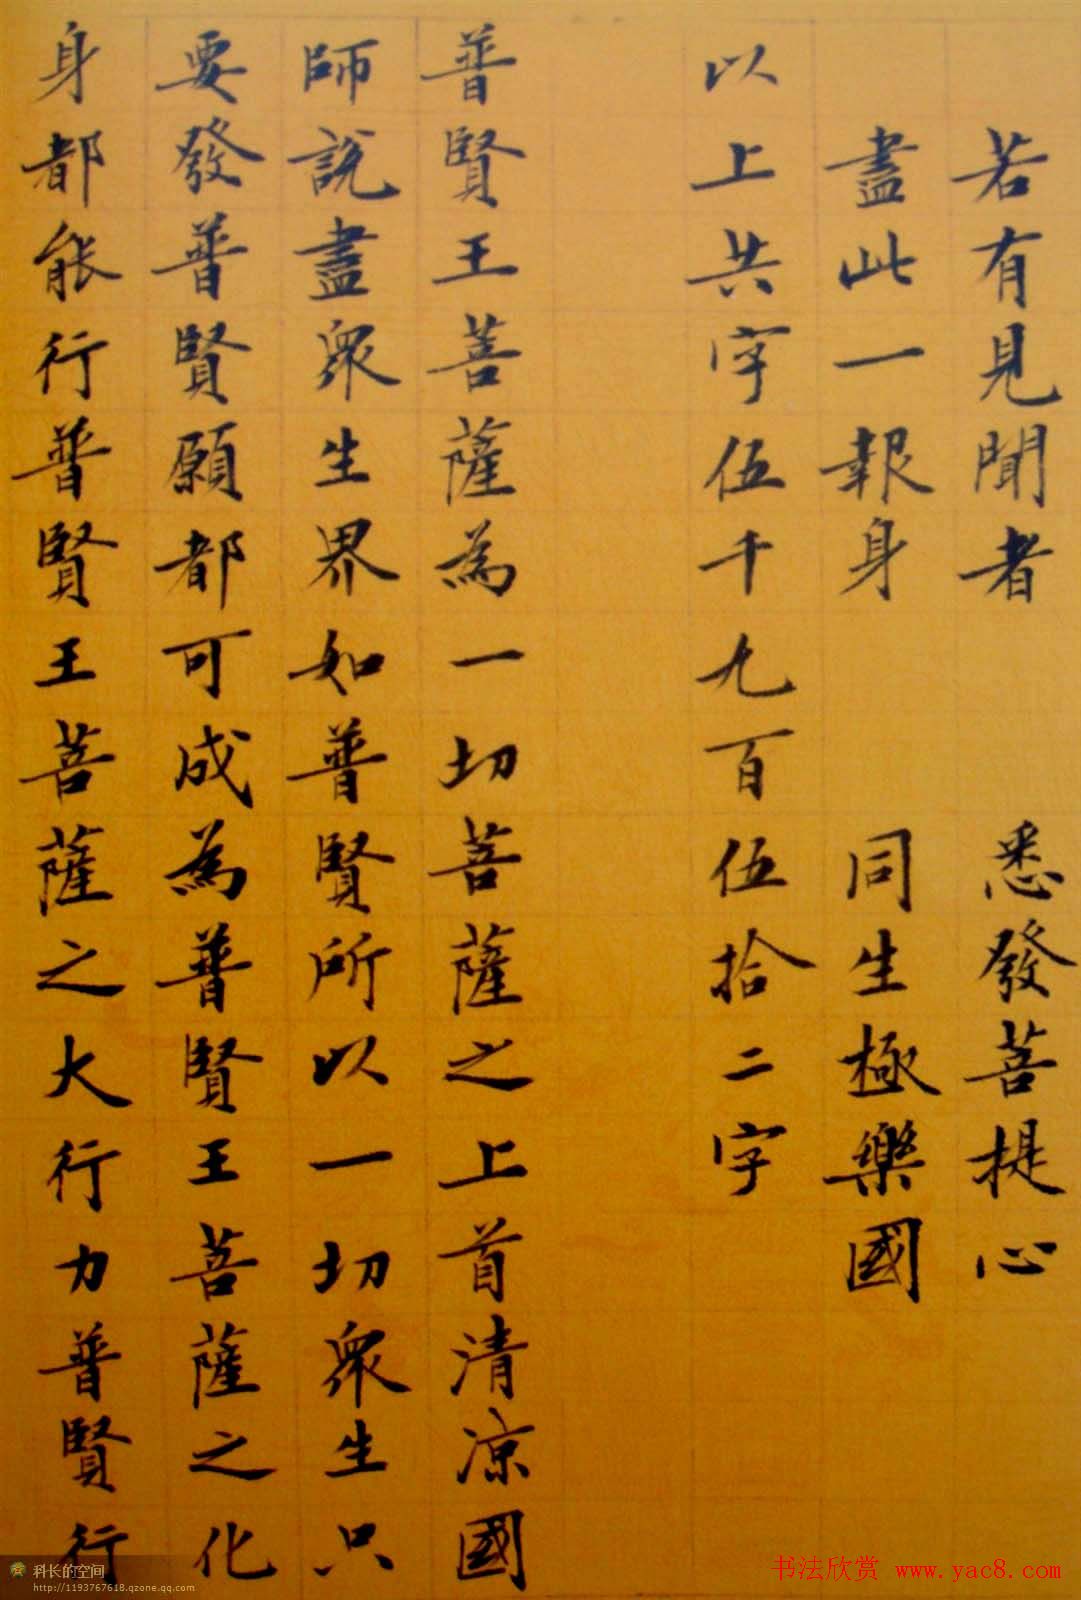 若有見聞者 悉發菩提心
盡此一報身 同生極樂國
以上共字伍千九百伍拾二字
普賢王菩薩為一切菩薩之上首清涼國
師說盡眾生界如普賢所以一切眾生只
要發普賢願都可成為普賢王菩薩之化
身都能行普賢王菩薩之大行力普賢行
科长的空间
http://1193767618.qzone.qq.com
书法欣赏 www.yac8.com